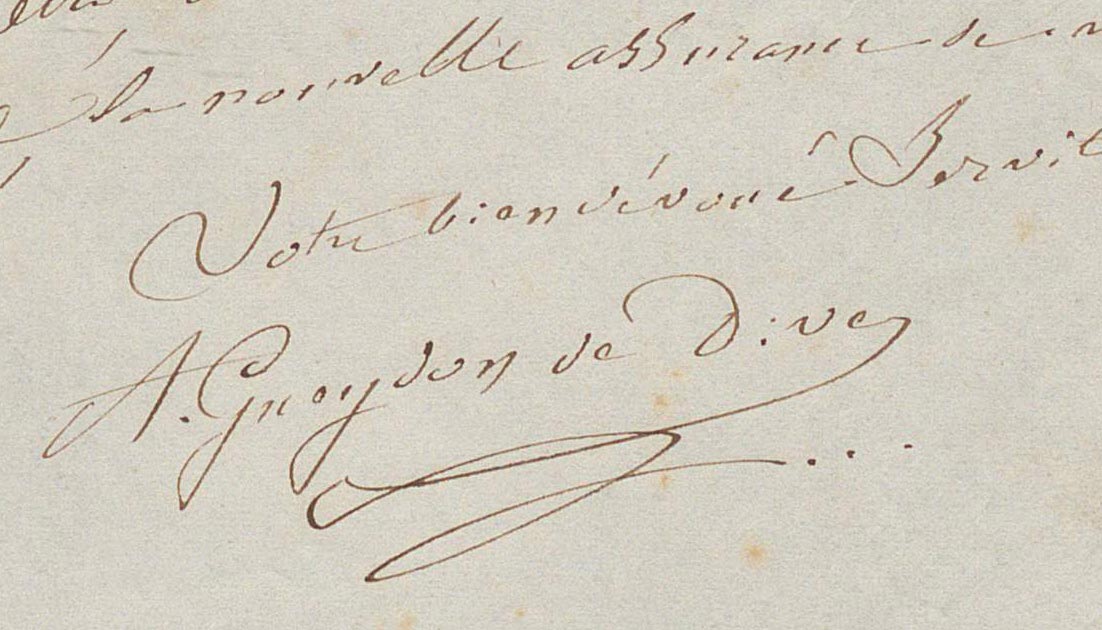 la nouvelle assurance de
Votre bien dévoué Servit
A. Gueydon de Dives